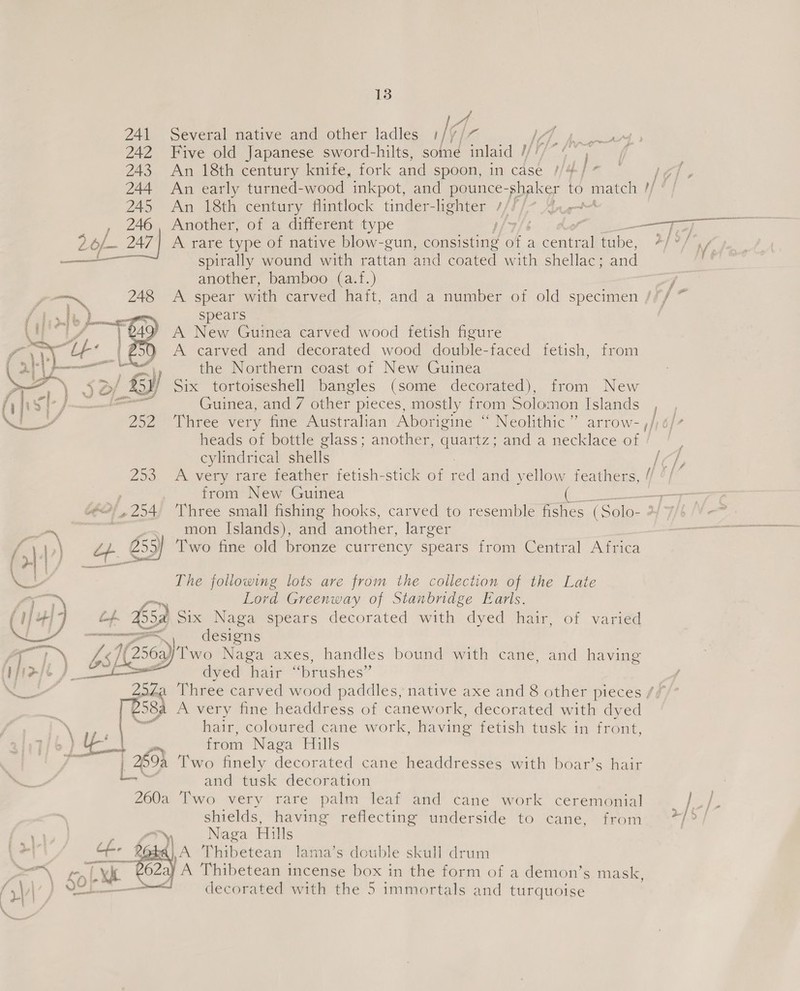 13
241 Several native and other ladles
242 Five old Japanese sword-hilts, some inlaid
243 An 18th century knife, fork and spoon, in case
244 An early turned-wood inkpot, and pounce-shaker to match
245 An 18th century flintlock tinder-lighter
246 Another, of a different type
247 A rare type of native blow-gun, consisting of a central tube,
spirally wound with rattan and coated with shellac; and
another, bamboo (a.f.)
248 A spear with carved haft, and a number of old specimen
spears
249 A New Guinea carved wood fetish figure
250 A carved and decorated wood double-faced fetish, from
the Northern coast of New Guinea
251 Six tortoiseshell bangles (some decorated), from New
Guinea, and 7 other pieces, mostly from Solomon Islands
252 Three very fine Australian Aborigine “ Neolithic ” arrow-
heads of bottle glass; another, quartz; and a necklace of
cylindrical shells
253 A very rare feather fetish-stick of red and yellow feathers,
from New Guinea
254 Three small fishing hooks, carved to resemble fishes (Solo-
mon Islands), and another, larger
255 Two fine old bronze currency spears from Central Africa
The following lots are from the collection of the Late
Lord Greenway of Stanbridge Earls.
255a Six Naga spears decorated with dyed hair, of varied
designs
256a Two Naga axes, handles bound with cane, and having
dyed hair “brushes”
257a Three carved wood paddles, native axe and 8 other pieces
258a A very fine headdress of canework, decorated with dyed
hair, coloured cane work, having fetish tusk in front,
from Naga Hills
259a Two finely decorated cane headdresses with boar’s hair
and tusk decoration
260a Two very rare palm leaf and cane work ceremonial
shields, having reflecting underside to cane, from
Naga Hills
261a A Thibetean lama’s double skull drum
262a A Thibetean incense box in the form of a demon’s mask,
decorated with the 5 immortals and turquoise